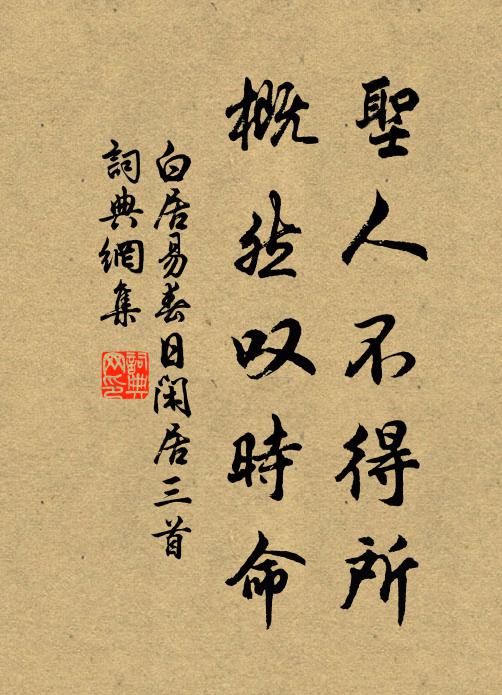 聖人不得所
概然叹時命
白居易春日閑居三首
詞典網集
詞典网印